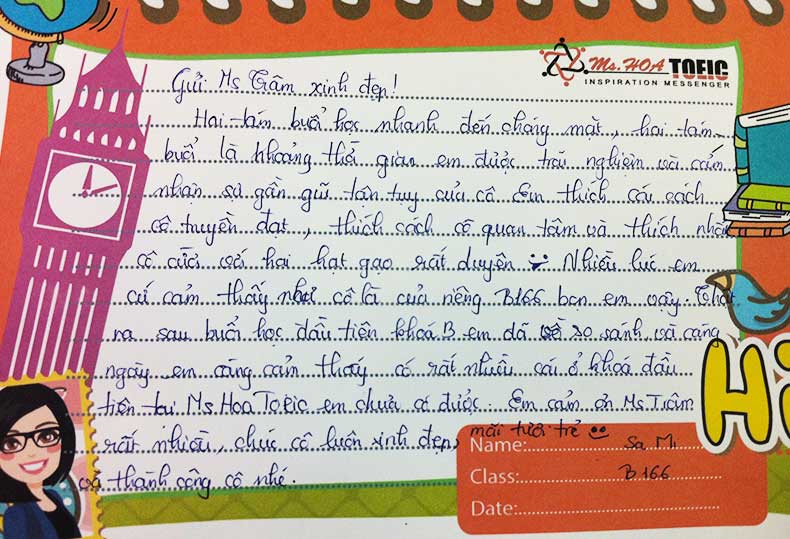 Ms. HOA TOEIC
INSPIRATION MESSENGER
Gửi Ms Trâm xinh đẹp!
Hai tám buổi học nhanh đến chóng mặt, hai tám
buổi là khoảng thời gian em được trải nghiệm và cảm
nhận sự gần gũi tận tụy của cô. Em thích cái cách
cô truyền đạt, thích cách cô quan tâm và thích nhìn
cô cười với hai hạt gạo rất duyên Nhiều lúc em
cứ cảm thấy như cô là của riêng B166 bọn em vậy. Thật
ra sau buổi học đầu tiên khoá B em đã so sánh và càng
ngày em càng cảm thấy có rất nhiều cái ở khoá đầu
tiên tại Ms Hoa Toeic em chưa có được. Em cảm ơn Ms Trâm
rất nhiều, chúc cô luôn xinh đẹp, mãi tươi trẻ
và thành công cô nhé.
Hi
Name: Sa Mi
Class: B166
Date: